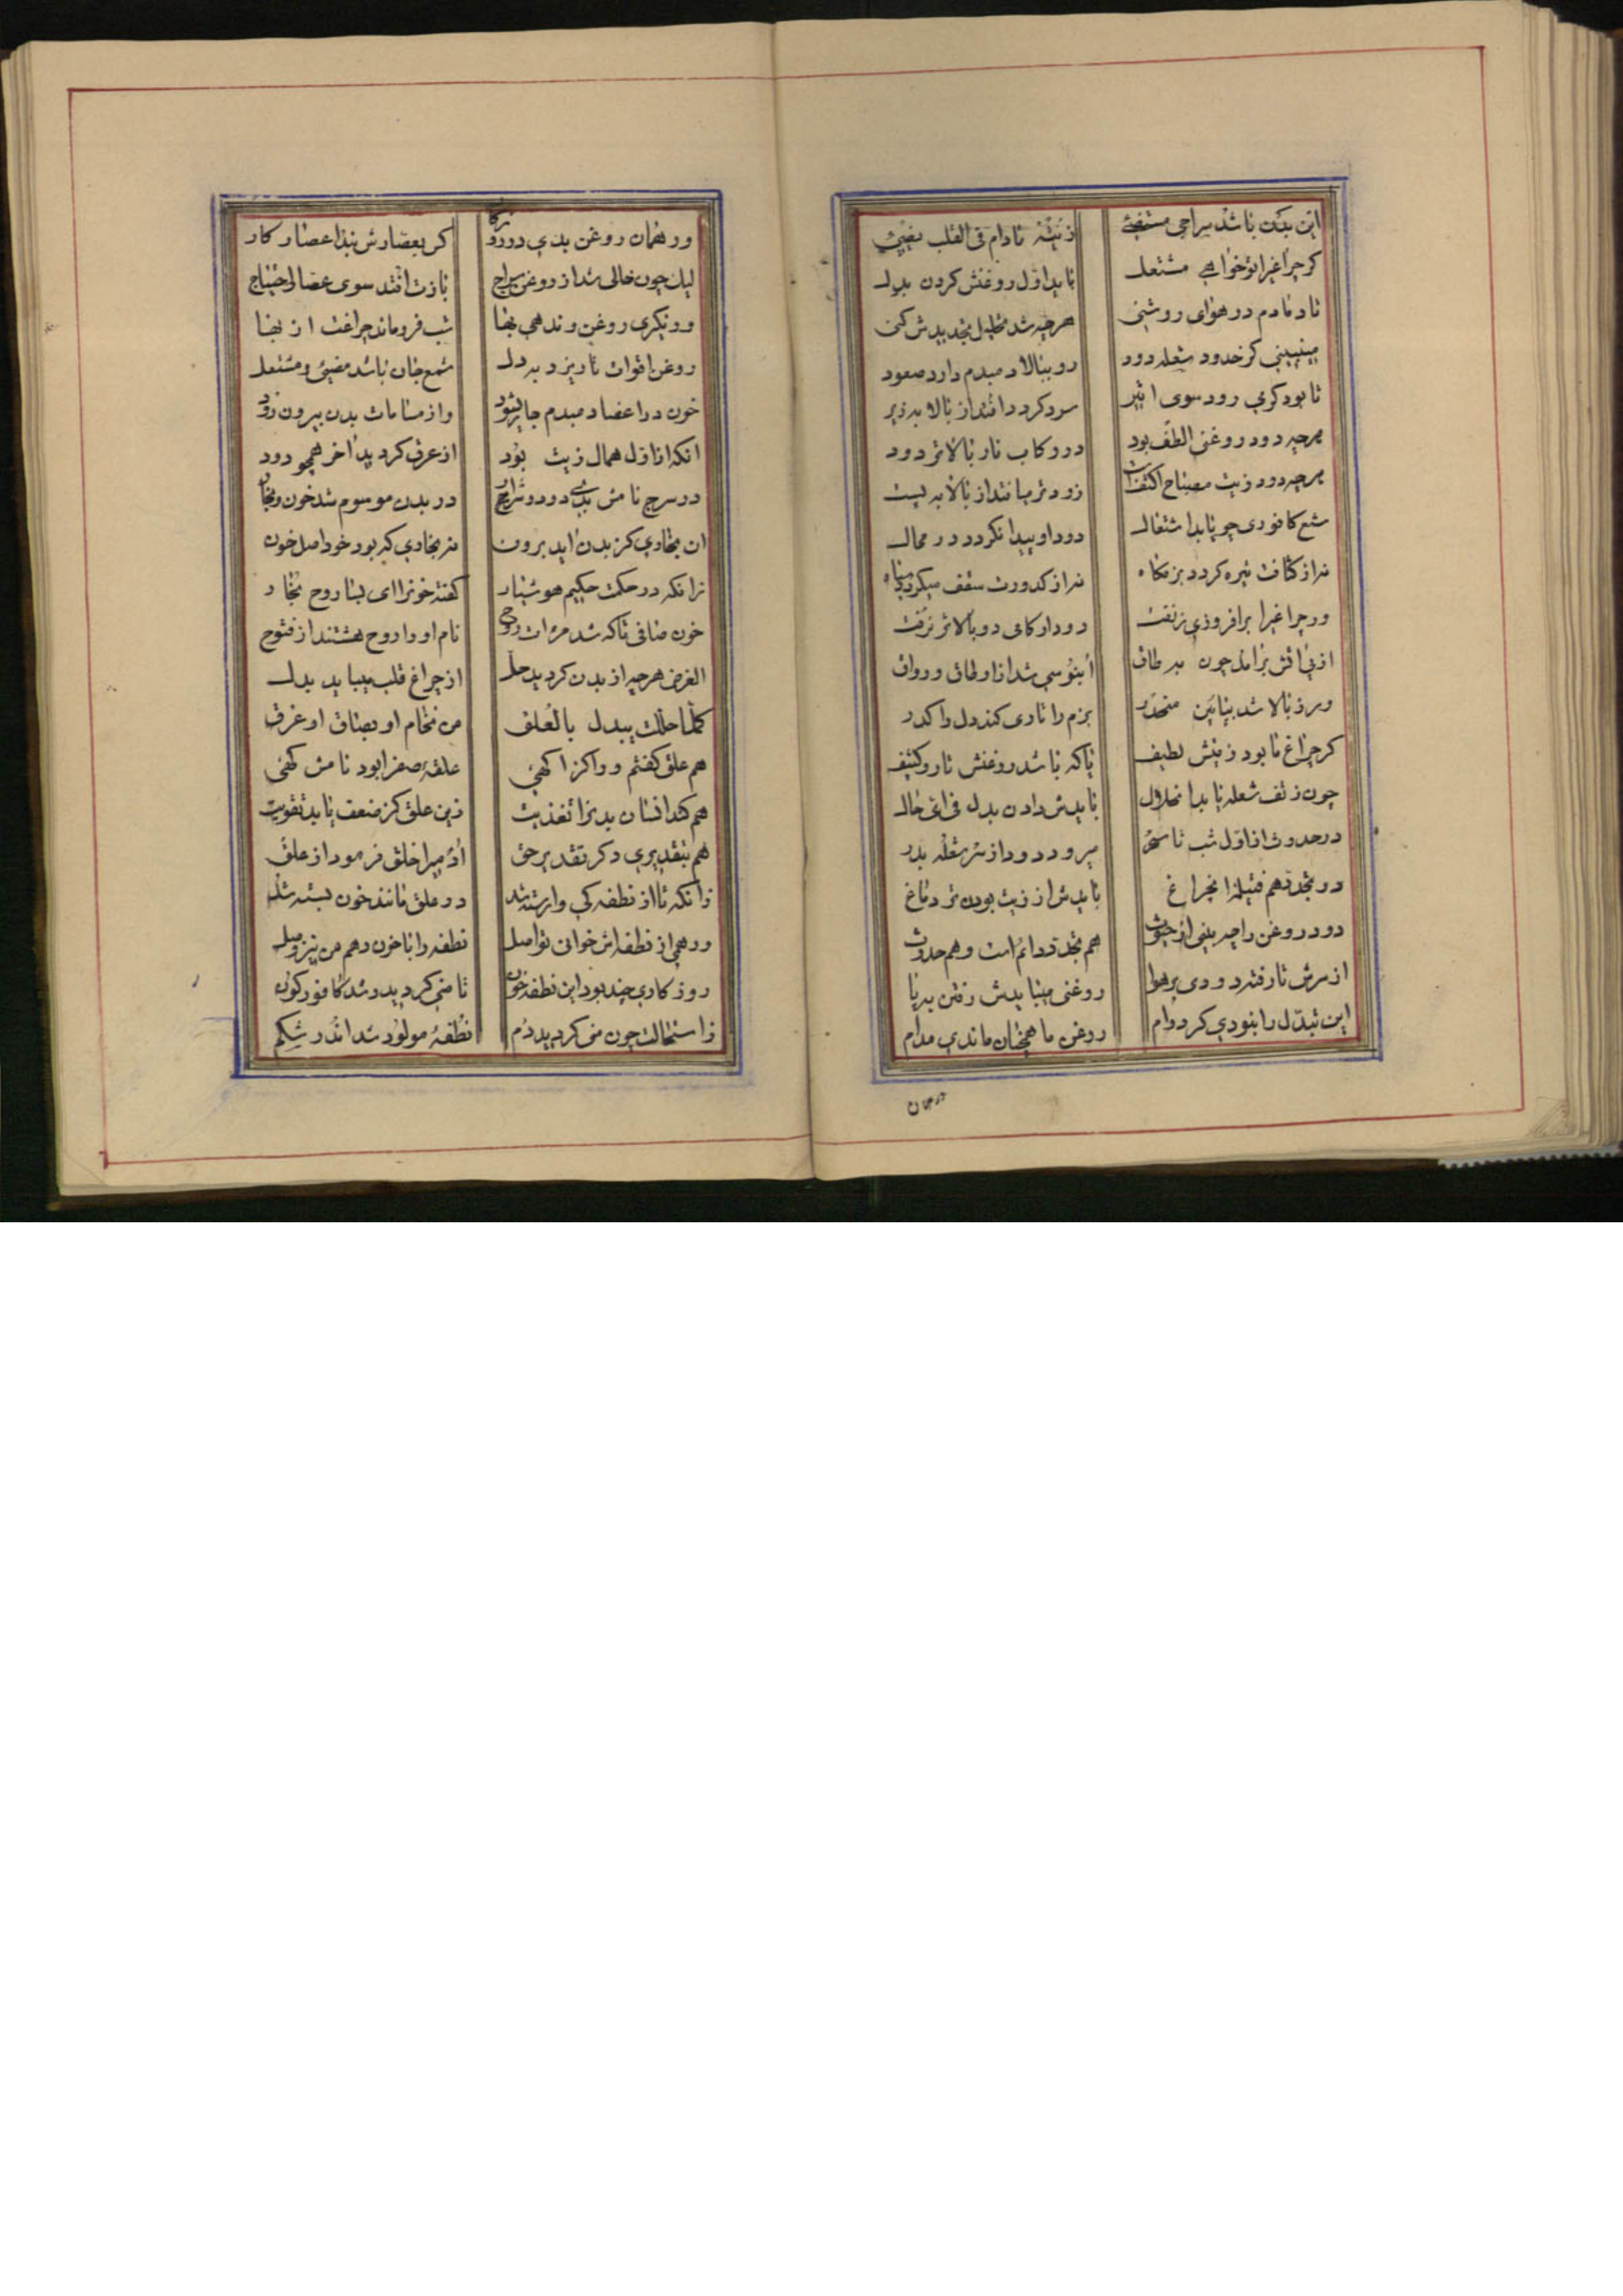 این بدن باشد سراجی مستضئ    زیته مادام فی القلب یضیئ
کر چراغیرا تو خواهی مشتعل    باید اول روغنش کردن بدل
تا دمادم در هوای روشنی    هرچه شد تحلیل تجدیدش کنی
میببینی کز حدود شعله دود    رو ببالا دمبدم دارد صعود
تا بود کرمی رود سوی اثیر    سرد کردد افتد از بالا بزیر
هرچه دود روغنی الطف بود    در رکاب نار بالاتر دود
هرچه دود زیت مصباح اکثفست    زودتر میافتد از بالا به پست
شمع کافوری چو یابد اشتعال    دود او پیدا نکردد در محال
نه از کثافت تیره کردد بزمکاه    نه از کدورت سقف میکردد سیاه
ور چراغیرا برافروزی ز نفت    دود ار کامی دو بالاتر نرفت
از پی اتش برآمد چون به طاق    آبنوسی شد ازو طاق و رواق
ور ز بالا شد بپایین منحدر    بزم را تاری کند دل را کدر
کر چراغ ما بود زیتش لطیف    یا که باشد روغنش تار و کثیف
چون ز تف شعله یابد انحلال    بایدش دادن بدل فی ای حال
در حدوث از اول شب تا سحر    میرود دود از سر شعله بدر
در تجدد هم فتیلهٔ این چراغ    بایدش از زیت بودن تر دماغ
دود روغن را چه بینی از حدوث    هم تجدد دائم است و هم حدوث
از سرش تا رفته دودی بر هوا    روغنی میبایدش رفتن بپا
این تبدل را نبودی کر دوام    روغن ما همچنان ماندی مدام
در همان
ور همان روغن بدی در روزکار    کی بعصارش بدا عصار کار
لیک چون خالی شد از روغن سراج    بازت افتد سوی عصار احتیاج
ور نکیری روغن و ندهی بها    شب فرو ماند چراغت از بها
روغن اقوات تا ریزد به دل    شمع جان باشد مضیئ و مشتعل
خون در اعضا دمبدم جاری شود    واز مسامات بدن بیرون رود
انکه از اول همال زیت بود    از عرق کردید آخر همچو دود
در سرج نامش بدی دود و شرار    در بدن موسوم شد خون و بخار
ان بخاری کز بدن اید برون    نه بخاری که بود خود اصل خون
زانکه در حکمت حکیم هوشیار    کفته خونرا ای بسا روح بخار
خون صافی تاکه شد مرات روح    نام او را روح هشتند از فتوح
الغرض هرچه از بدن کردید حل    از چراغ قلب میباید بدل
کلما حللت یبدل بالعلق    من نخام او بصاق او عرق
هم علق کفتم ور واکر اکهی    علقهٔ صفرا بود نامش کهی
هم کند انسان بدنرا تغذیت    زین علق کز ضعف یابد تقویت
هم بتقدیری دکر تقدیر حق    آدمیرا خلق فرمود از علق
زانکه تا از نطفه کی وارسته شد    در علق مانند خون بسته شد
ور همی از نطفه اش خوانی تو اصل    نطفه را با خون و هم من نیز وصل
روزکاری چند بود این نطفه خون    تا منی کردید و شد کافورکون
ز استحالت چون منی کردید دم    نطفهٔ مولود شد اندر شکم